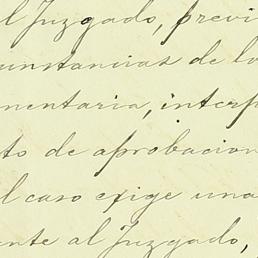 el Juzgado, previ
cunstancias de lo
mentaria, interp
to de aprobacion
l caso exige una
ente al Juzgado,